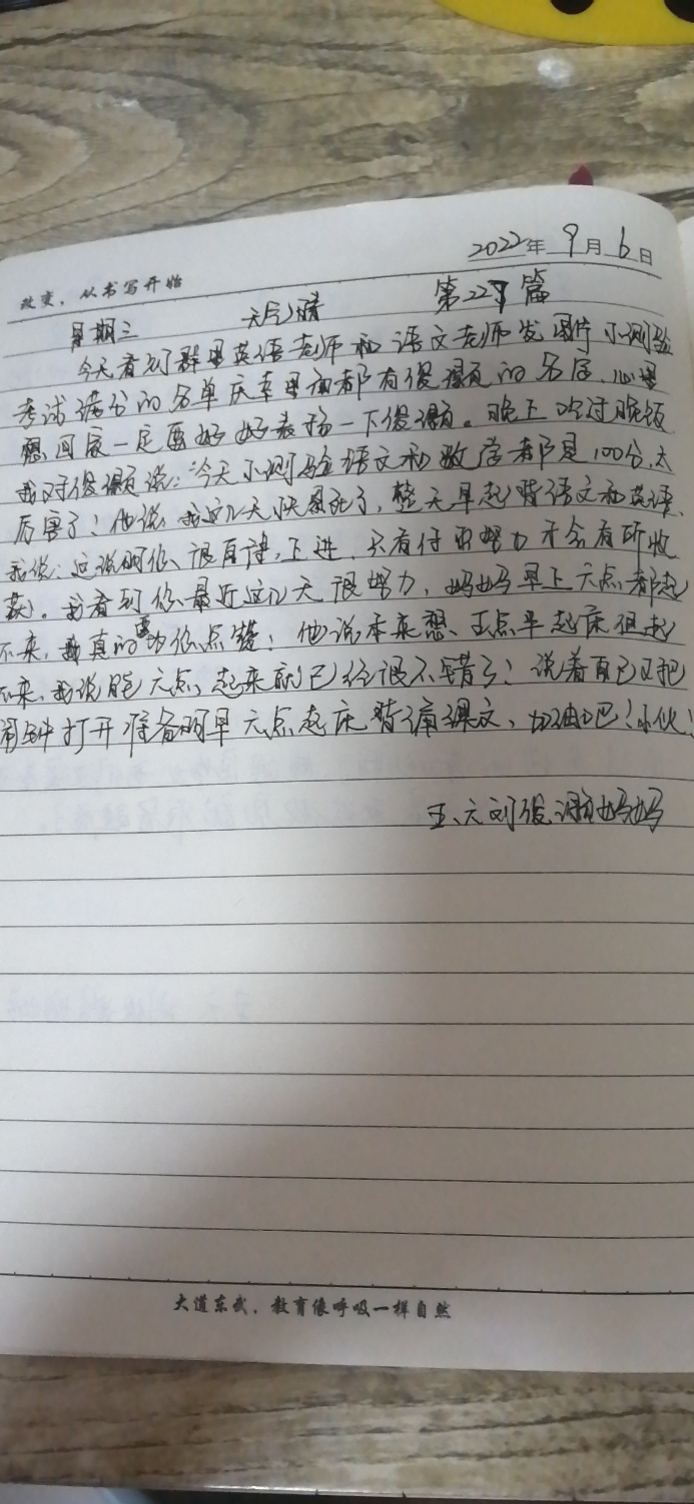 2022年 9月 6日
改变，从书写开始
星期三 天气:晴 第227篇
今天看到群里英语老师和语文老师发图片小测验
考试满分的名单庆幸里面都有俊灏的名字、心里
想回家一定要好好表扬一下俊灏。晚上吃过晚饭
我对俊灏说："今天小测验语文和数学都是100分,太
厉害了！他说我这几天快累死了，整天早起背语文和英语,
我说：这说明你、很自律,上进、只有付出努力才会有所收
获。我看到你最近这几天很努力，妈妈早上六点都起
不来，我真的要为你点赞！他说本来想、五点半起床但起
不来，我说能六点、起来就已经很不错了！说着自己又把
闹钟打开准备明早六点起床背诵课文、加油吧！小伙！
五、六刘俊灏妈妈
大道东武，教育像呼吸一样自然